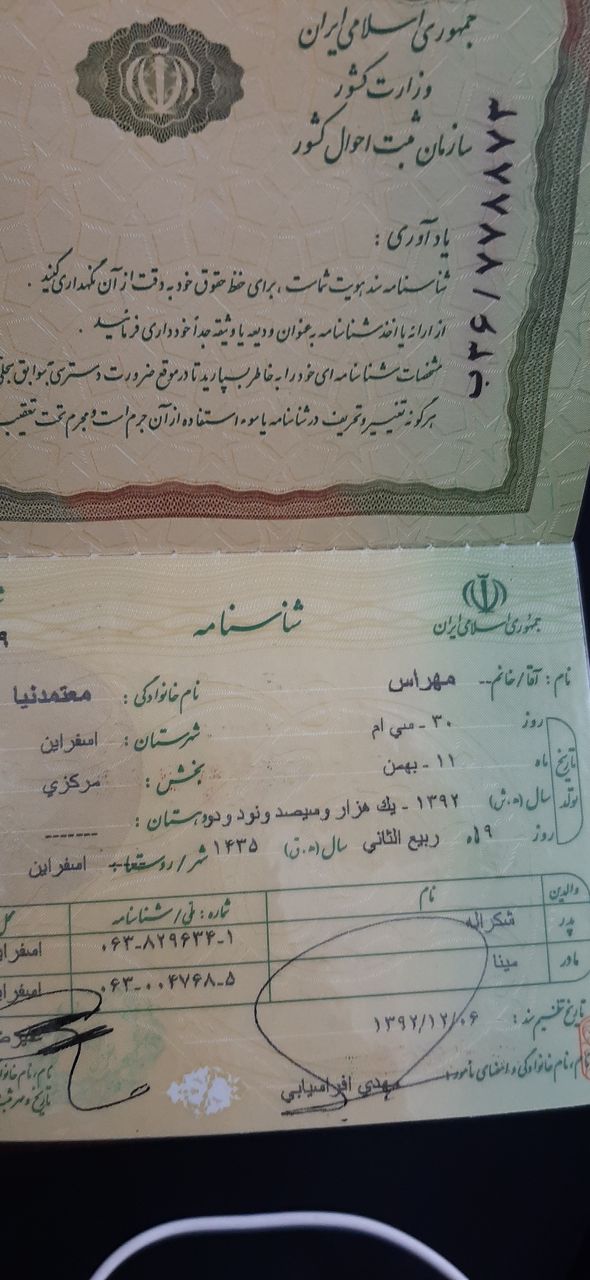 جمهوری اسلامی ایران
وزارت کشور
سازمان ثبت احوال کشور
ب۳۶/۷۷۸۸۷۳
یادآوری :
شناسنامه سند هویت شماست ، برای حفظ حقوق خود به دقت از آن نگهداری کنید .
از ارائه یا اخذ شناسنامه به عنوان ودیعه یا وثیقه جداً خودداری فرمائید .
مشخصات شناسنامه ای خود را به خاطر بسپارید تا در موقع ضرورت دسترسی به سوابق سجلی
هرگونه تغییر و تحریف در شناسنامه یا سوء استفاده از آن جرم است و مجرم تحت تعقیب
جمهوری اسلامی ایران
شناسنامه
نام : آقا/خانم-- مهراس نام خانوادگی : معتمدنیا
تاریخ تولد
روز ۳۰ - سي ام شهرستان : اسفراین
ماه ۱۱ - بهمن بخش : مرکزي
سال (ه.ش) ۱۳۹۲ - یك هزار و سیصد و نود و دو دهستان : -------
روز ۹ ماه ربیع الثاني سال (ه.ق) ۱۴۳۵ شهر / روستا اسفراین
والدین نام شماره : ملی/شناسنامه
پدر شکراله ۰۶۳-۸۲۹۶۳۴-۱ اسفرا
مادر مینا ۰۶۳-۰۰۴۷۶۸-۵ اسفرا
تاریخ تنظیم سند : ۱۳۹۲/۱۲/۰۶
نام، نام خانوادگی و امضای مأمور : مهدي افراسیابي
نام، نام خانوا
تاریخ و مهر